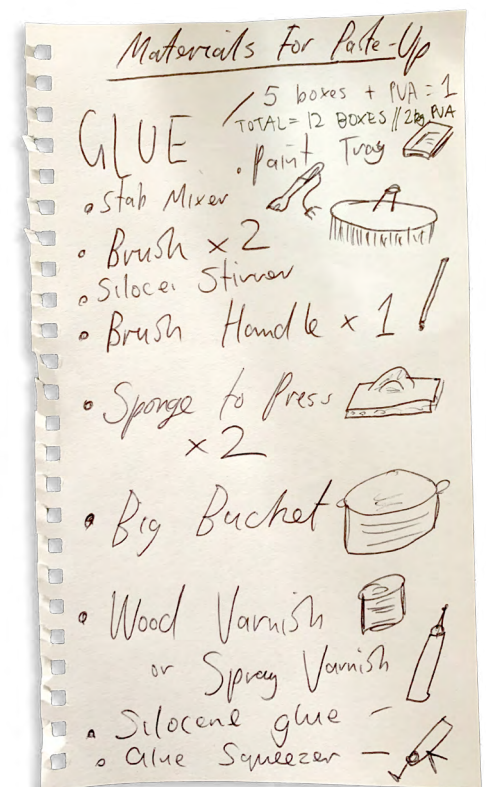 Materials For Paste-Up
5 boxes + PVA = 1
TOTAL = 12 BOXES // 2kg PVA
GLUE
• Paint Tray
• Stab Mixer
• Brush x 2
• Silocei Stirrer
• Brush Handle x 1
• Sponge to Press
x 2
• Big Bucket
• Wood Varnish
or Spray Varnish
• Silocene glue -
• Glue Squeezer -